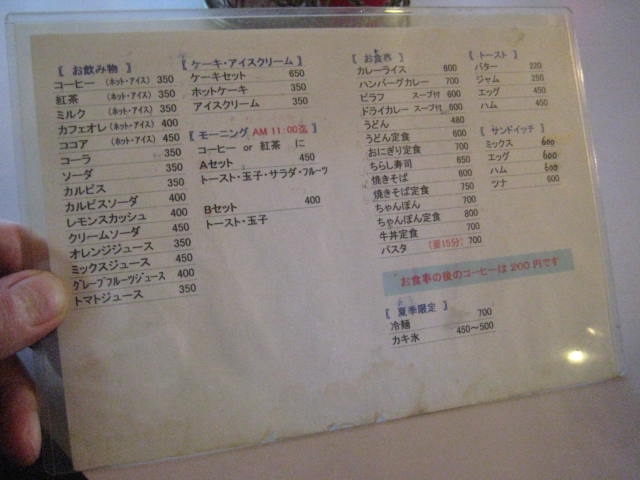 【 お飲み物 】
コーヒー (ホット・アイス) 350
紅茶 (ホット・アイス) 350
ミルク (ホット・アイス) 350
カフェオレ (ホット・アイス) 400
ココア (ホット・アイス) 450
コーラ 350
ソーダ 350
カルピス 350
カルピスソーダ 400
レモンスカッシュ 400
クリームソーダ 450
オレンジジュース 350
ミックスジュース 450
グレープフルーツジュース 400
トマトジュース 350
【 ケーキ・アイスクリーム 】
ケーキセット 650
ホットケーキ 350
アイスクリーム 350
【 モーニング AM 11:00迄 】
コーヒー or 紅茶 に
Aセット 450
トースト・玉子・サラダ・フルーツ
Bセット 400
トースト・玉子
【 お食事 】
カレーライス 600
ハンバーグカレー 700
ピラフ スープ付 600
ドライカレー スープ付 600
うどん 480
うどん定食 600
おにぎり定食 700
ちらし寿司 650
焼きそば 600
焼きそば定食 750
ちゃんぽん 700
ちゃんぽん定食 800
牛丼定食 700
パスタ (要15分) 700
お食事の後のコーヒーは 200 円です
【 夏季限定 】
冷麺 700
カキ氷 450~500
【 トースト 】
バター 220
ジャム 250
エッグ 450
ハム 450
【 サンドイッチ 】
ミックス 600
エッグ 600
ハム 600
ツナ 600